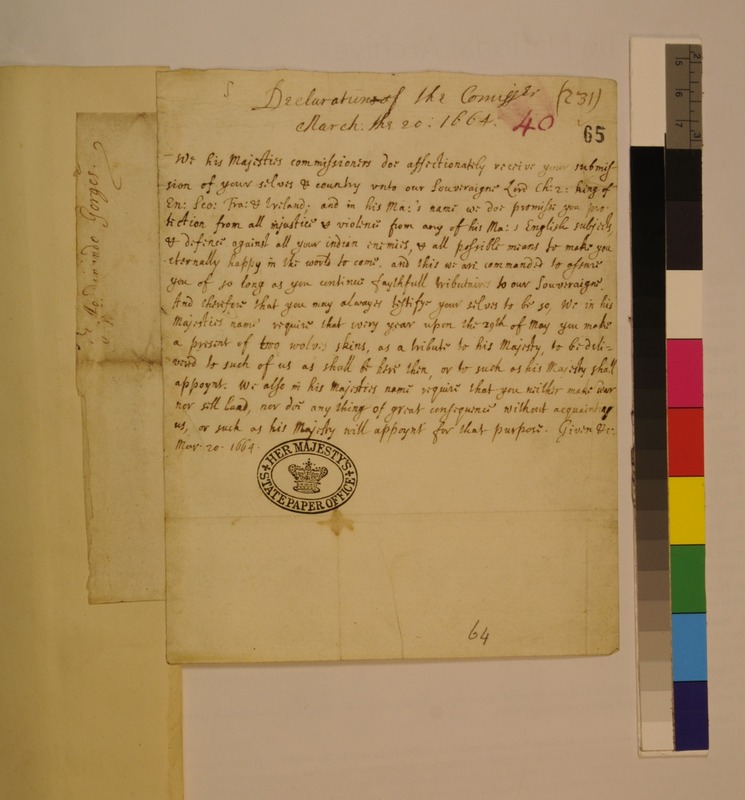 Declaration of the Comissers (231)
March. the 20: 1664. 40
65
We his Majesties commissioners doe affectionately receive your submis-
sion of your selves & country vnto our Souveraigne Lord Ch: 2: king of
En: Sco: Fra: & Ireland. and in his Ma:'s name we doe promise you pro-
tection from all injustice & violence from any of his Ma:s English subjects,
& defence against all your indian enemies, & all possible means to make you
eternally happy in the world to come. and this we are commanded to assure
you of so long as you continue faythfull tributaries to our Souveraigne.
And therefore that you may alwayes testifye your selves to be so, We in his
Majesties name require that every year upon the 29th of May you make
a present of two wolves skins, as a tribute to his Majesty, to be deli-
verd to such of us as shall be here then, or to such as his Majesty shall
appoynt. We also in his Majesties name require that you neither make war
nor sell land, nor doe any thing of great consequence without acquainting
us, or such as his Majesty will appoynt for that purpose. Given &c.
Mar. 20. 1664.
HER MAJESTY'S
STATE PAPER OFFICE
64
Ferdinando Gorges.
2
5
6
7
3